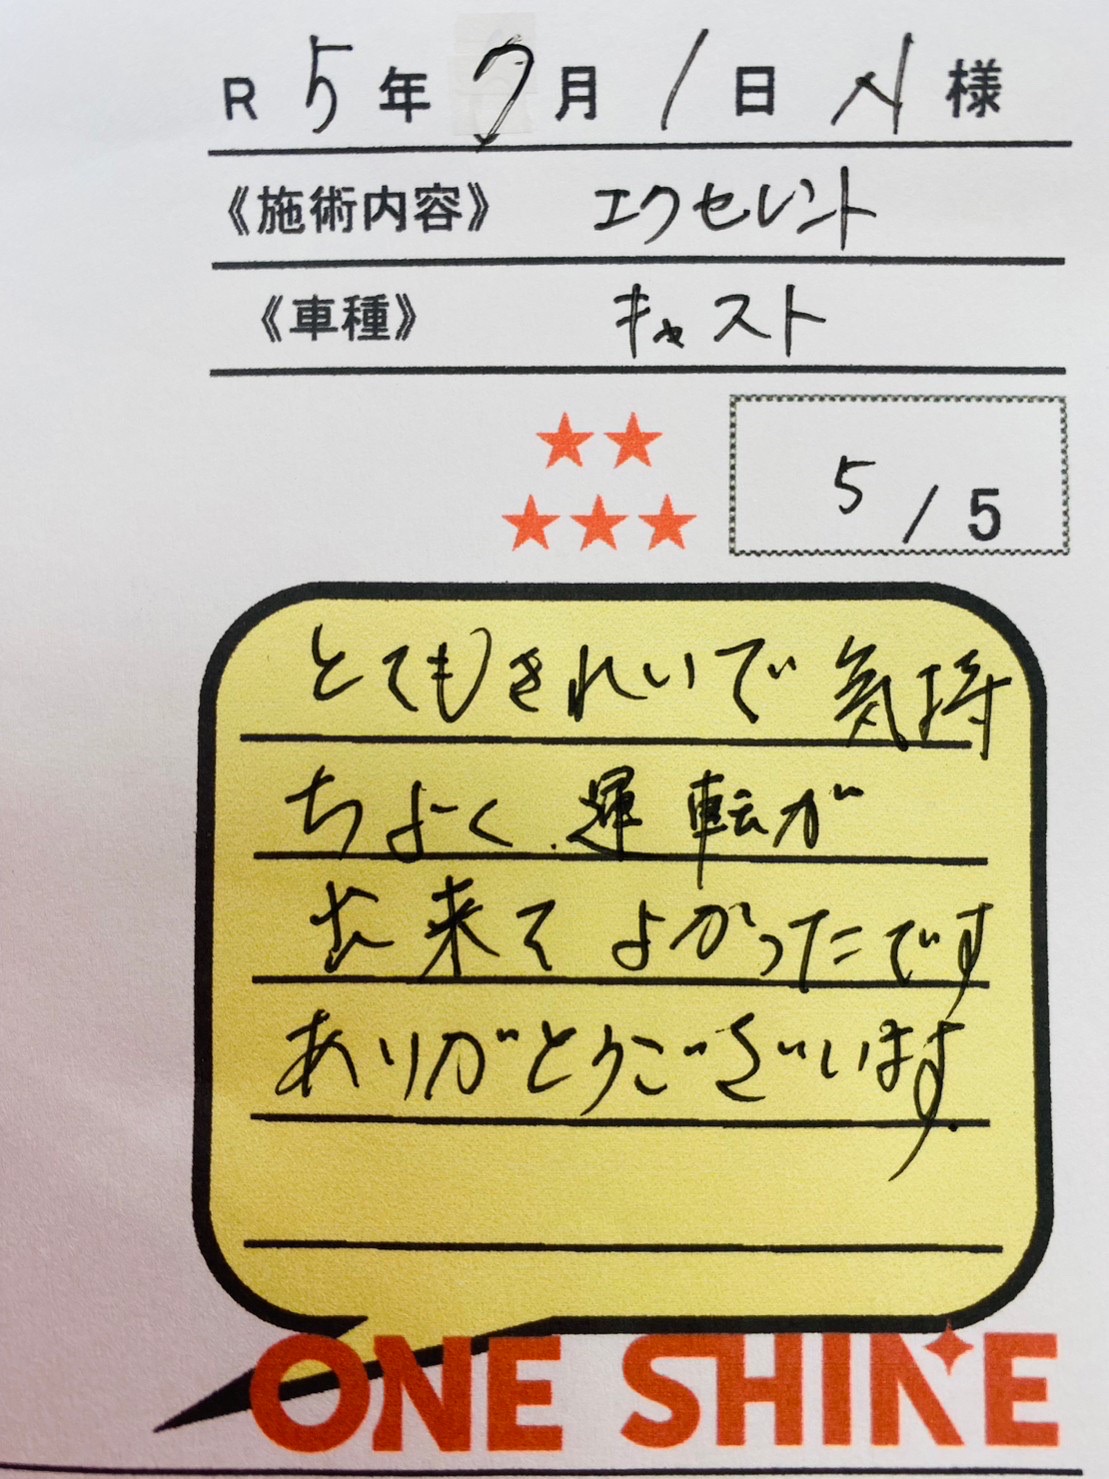 R 5年 7月 1日 N様
《施術内容》 エクセレント
《車種》 キャスト
★★
★★★
5/5
とてもきれいで気持
ちよく、運転が
出来てよかったです
ありがとうございます.
ONE SHINE